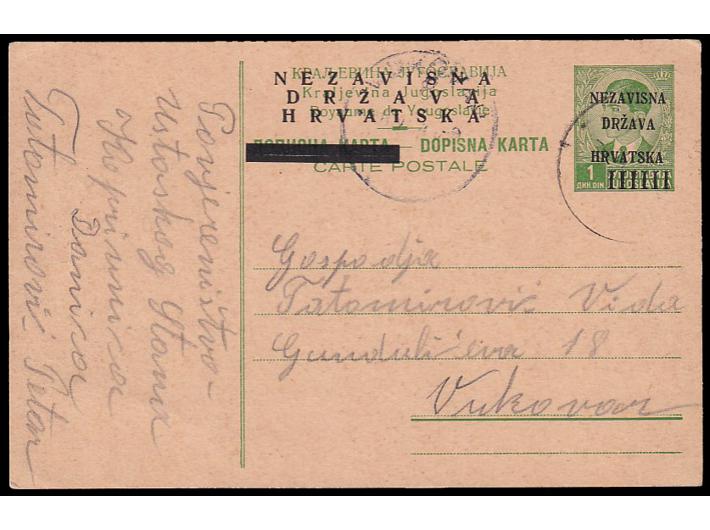 NEZAVISNA
DRŽAVA
HRVATSKA
КРАЉЕВИНА ЈУГОСЛАВИЈА
Kraljevina Jugoslavija
Royaume de Yougoslavie
ДОПИСНА КАРТА — DOPISNA KARTA
CARTE POSTALE
NEZAVISNA
DRŽAVA
HRVATSKA
1
ДИН DIN
JUGOSLAVIJA
Gospodja
Tatomirović Vida
Gundulićeva 18
Vukovar
Povjereništvo
Ustaškog Stana
Koprivnica
Danica
Tatomirović Petar